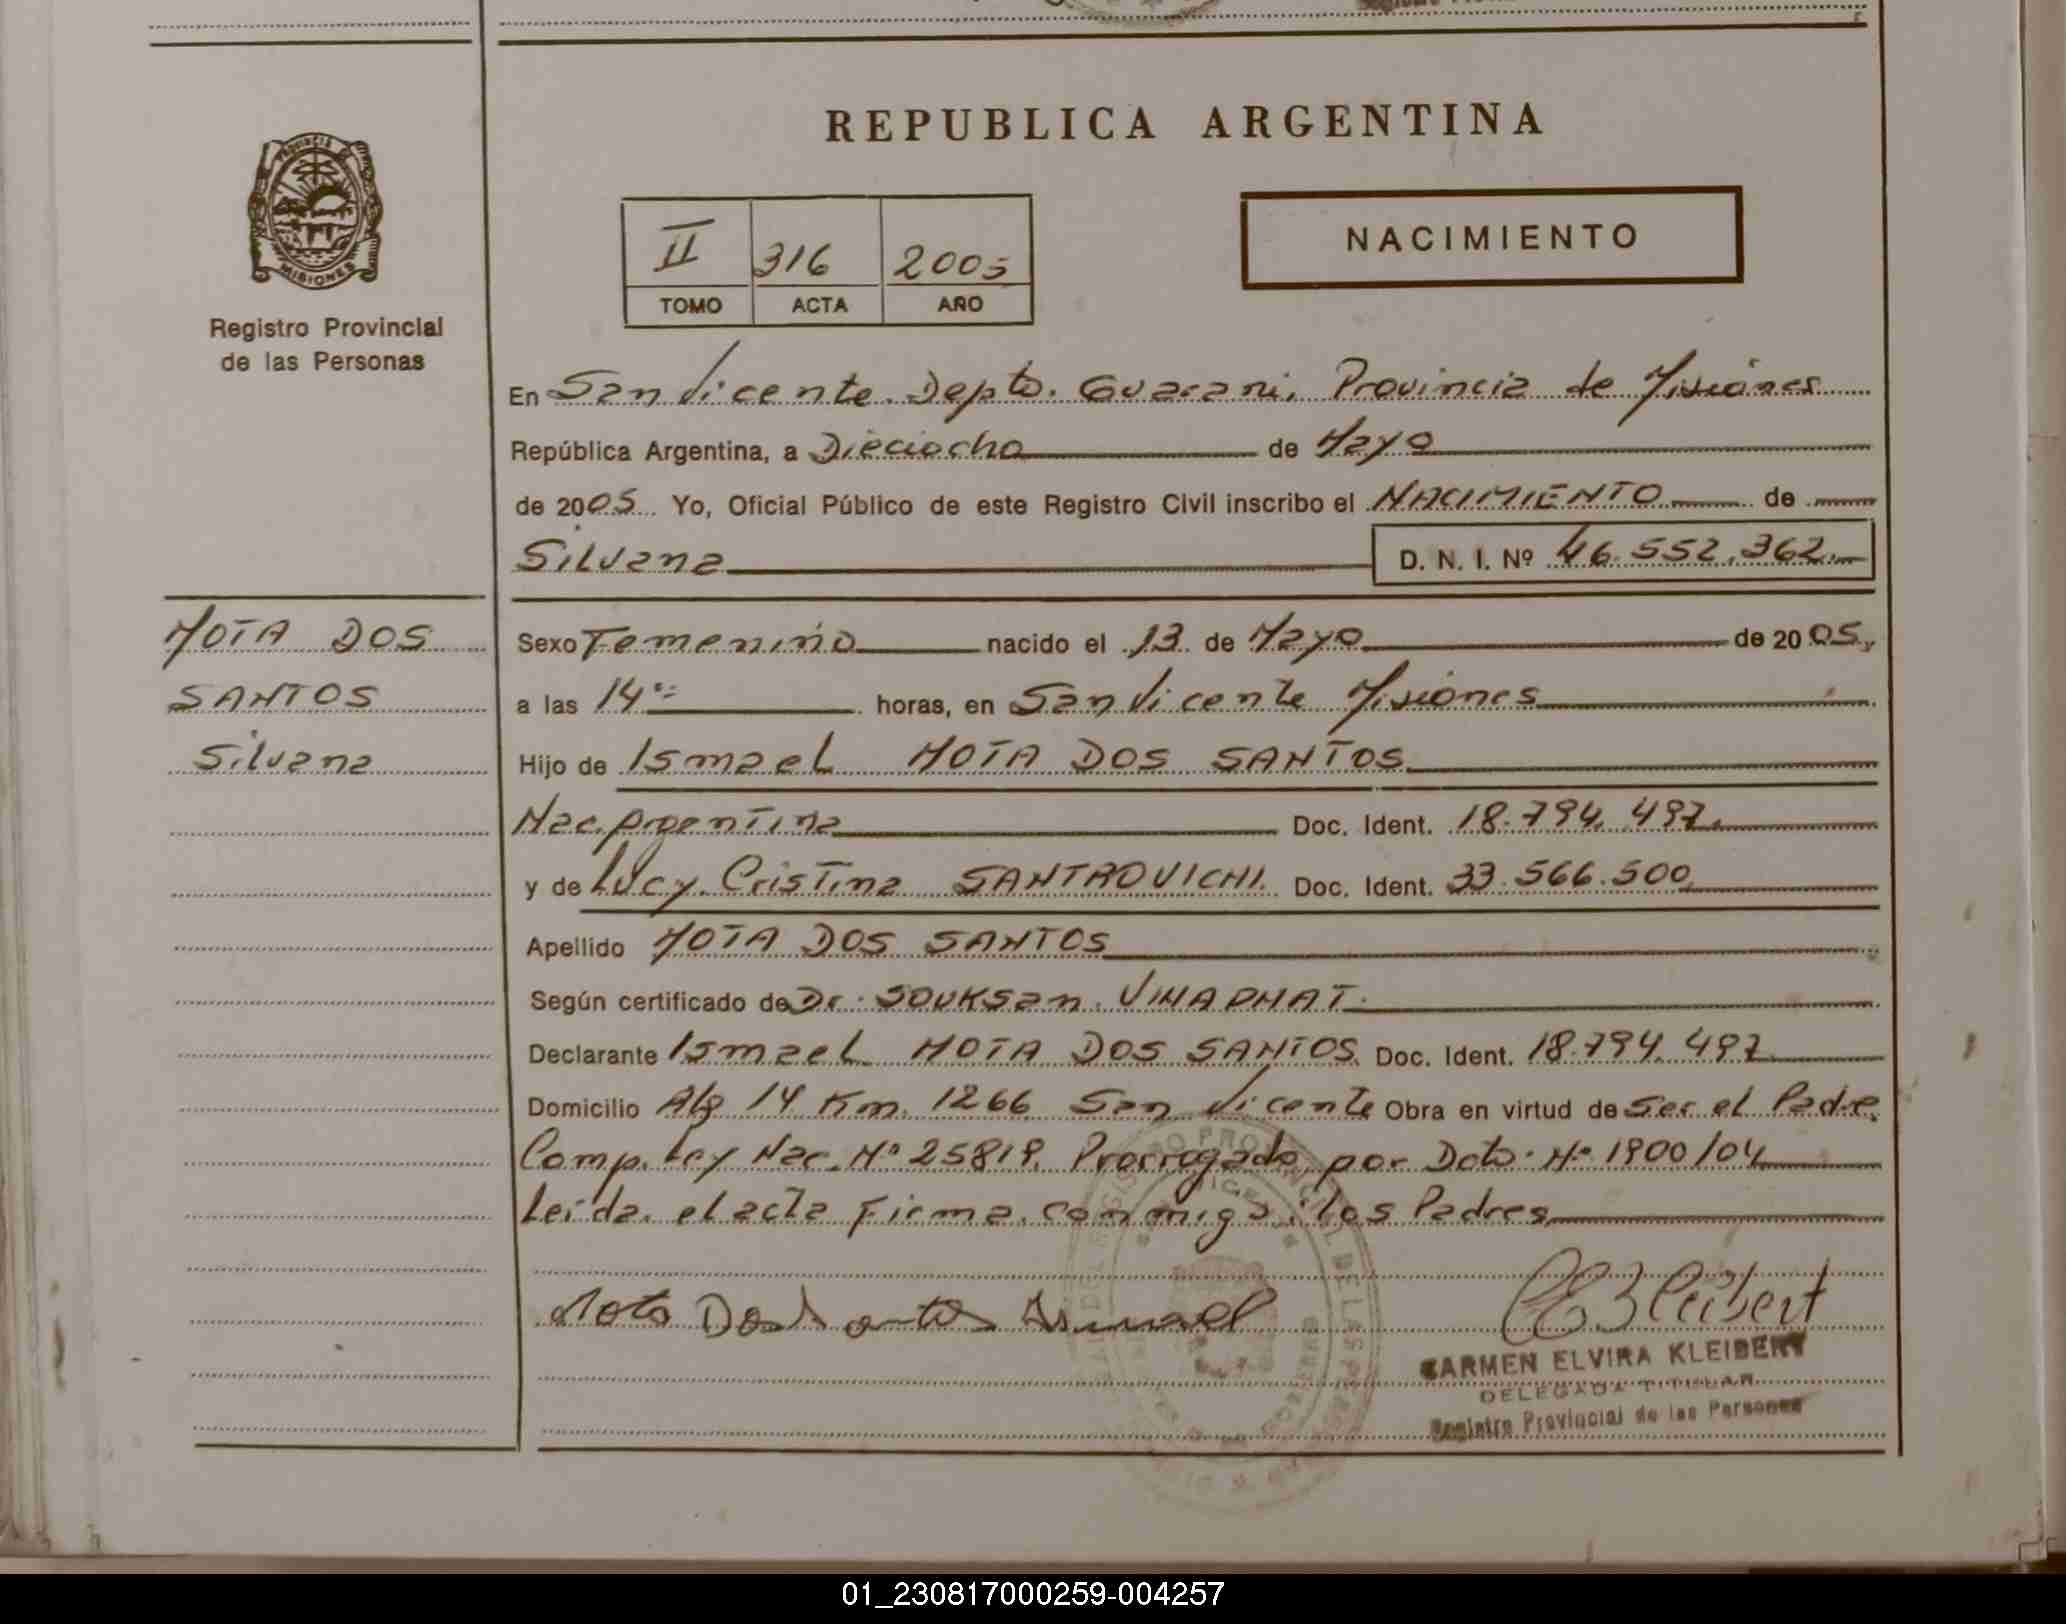 REPUBLICA ARGENTINA
PROVINCIA DE
MISIONES
Registro Provincial
de las Personas
II 316 2005
TOMO ACTA AÑO
NACIMIENTO
En San Vicente Depto. Guarani, Provincia de Misiones
República Argentina, a Dieciocho de Mayo
de 2005 Yo, Oficial Público de este Registro Civil inscribo el NACIMIENTO de
Silvana D. N. I. Nº 46.552.362.
MOTA DOS
SANTOS
Silvana
Sexo Femenino nacido el 13 de Mayo de 2005,
a las 14 horas, en San Vicente Misiones
Hijo de Ismael MOTA DOS SANTOS
Nac. Argentina Doc. Ident. 18.794.497.
y de Lucy Cristina SANTROVICHI. Doc. Ident. 33.566.500
Apellido MOTA DOS SANTOS
Según certificado de Dr. SOUKSan.
Declarante Ismael MOTA DOS SANTOS. Doc. Ident. 18.794.497
Domicilio 14 Km. 1266 San Vicente Obra en virtud de Ser el Padre.
Comp. Ley Nac. Nº 25819. Prorrogado por Dcto. Nº 1900/04
Leida el acta Firma conmigo los Padres
Mota Dos Santos Ismael
CEKleibert
CARMEN ELVIRA KLEIBERT
DELEGADA TITULAR
Registro Provincial de las Personas
01_230817000259-004257